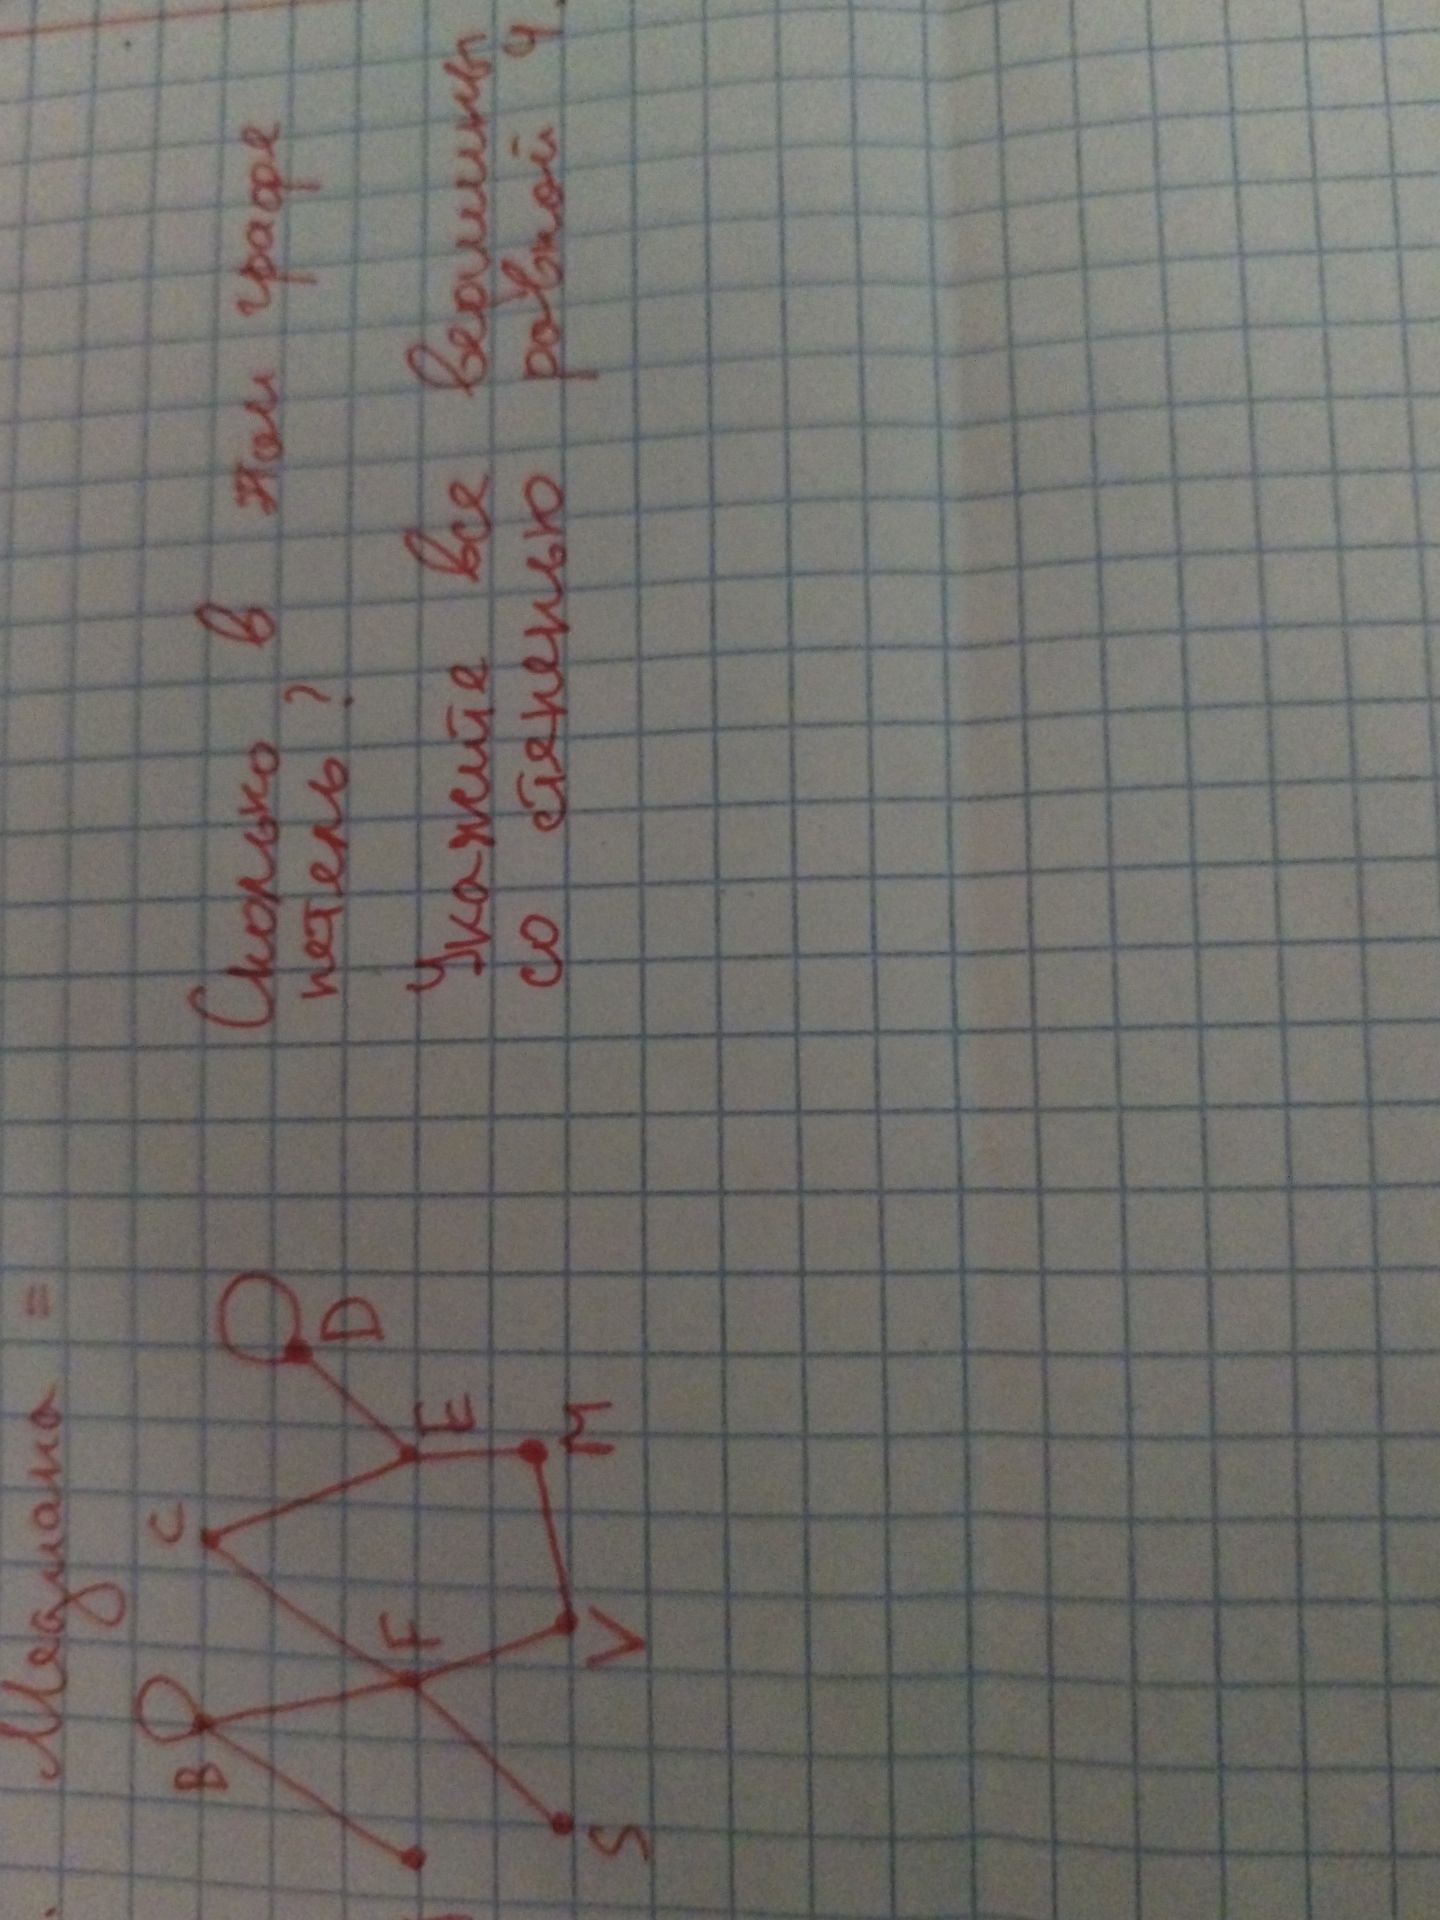 Медиана =
Сколько в этом графе
петель?
Укажите все вершины
со степенью равной 4.
B
C
D
F
E
S
V
M